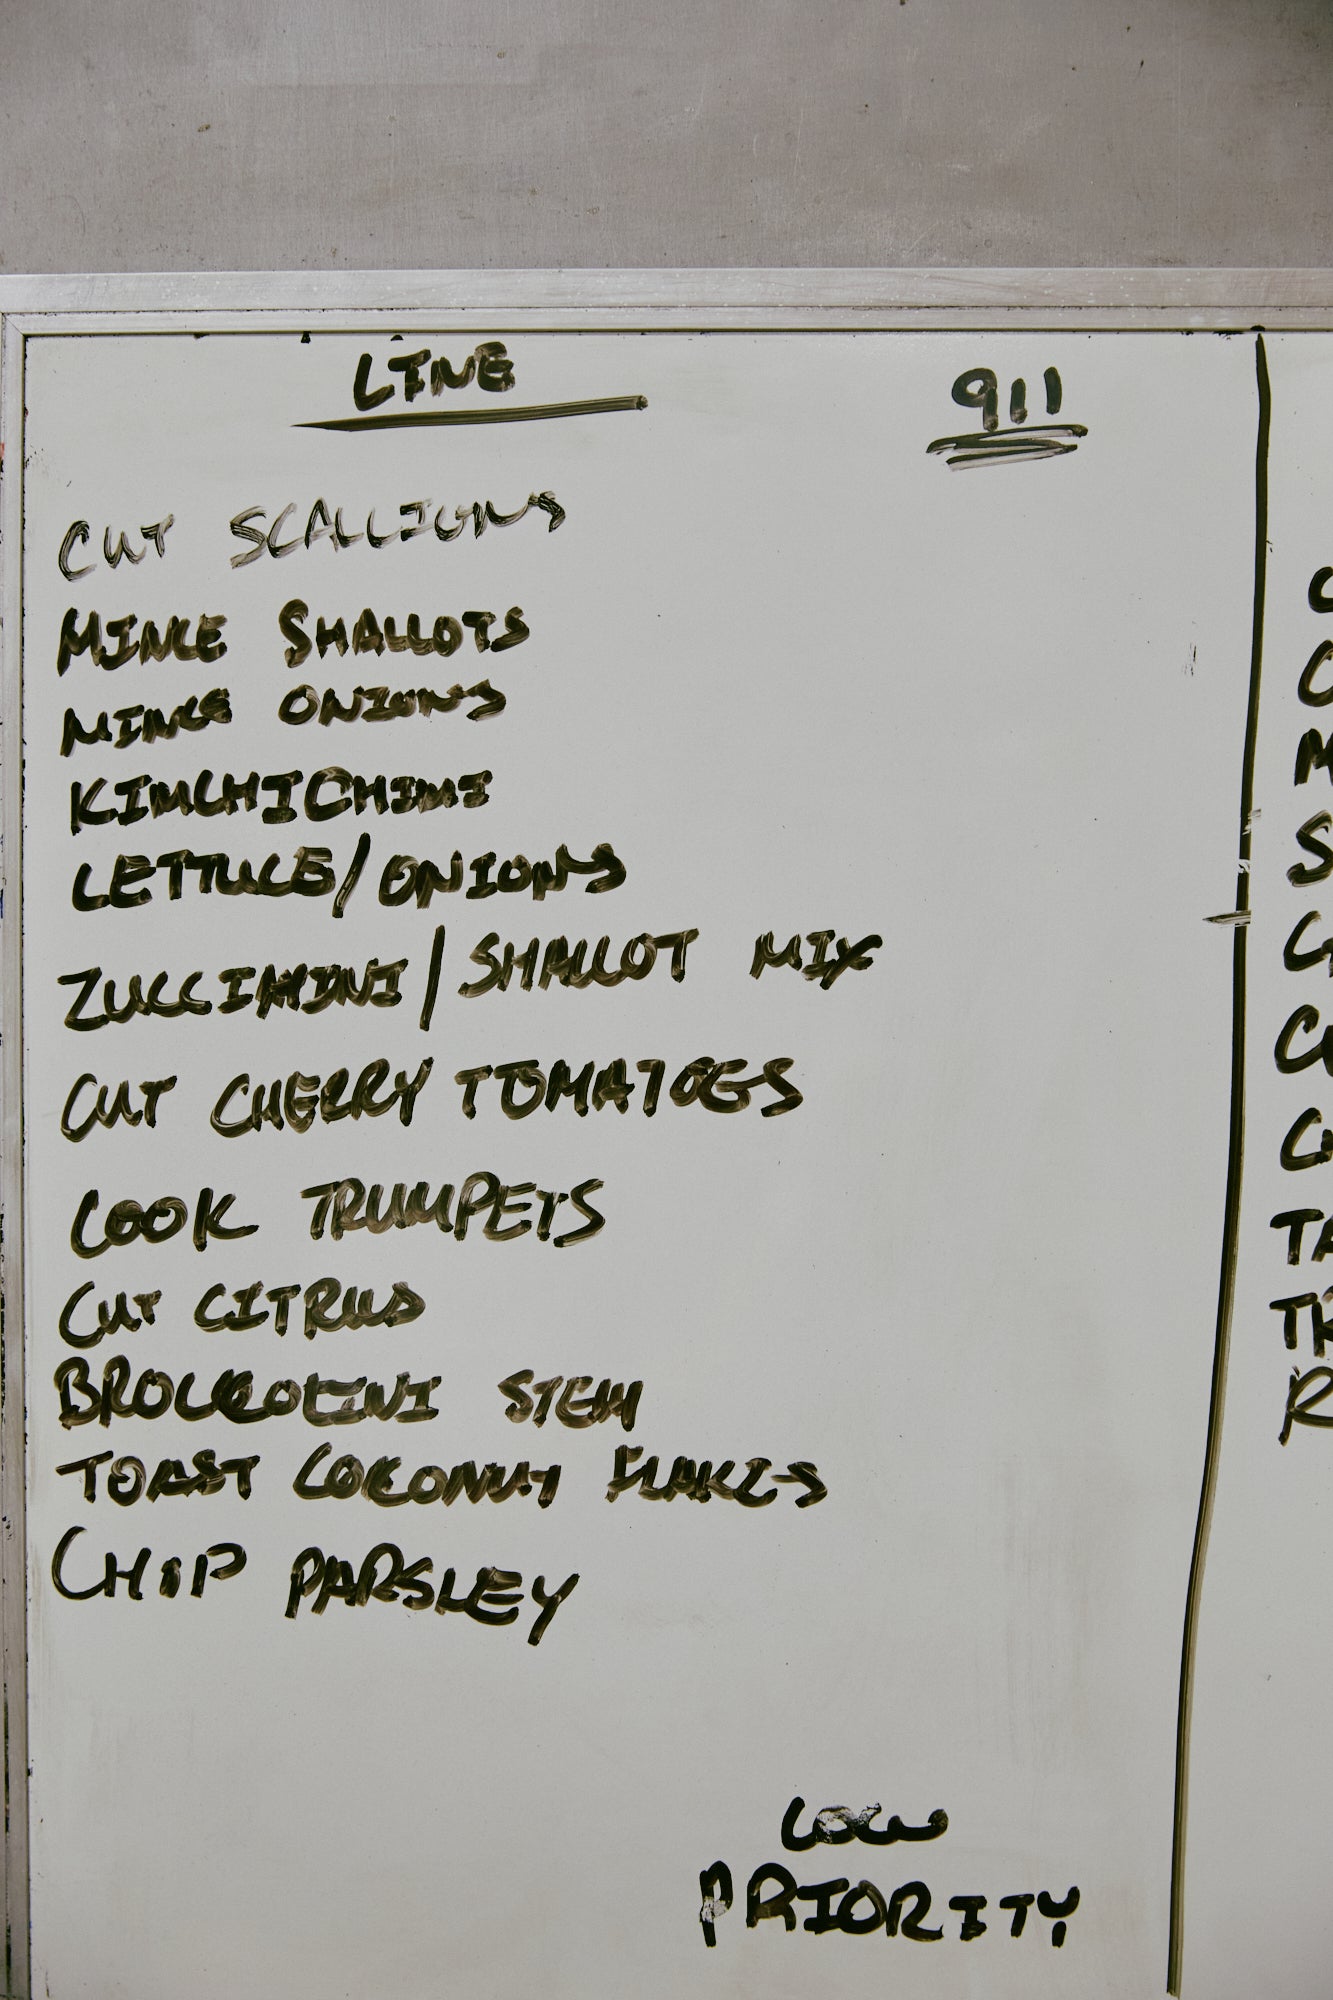 LINE
911
CUT SCALLIONS
MINCE SHALLOTS
MINCE ONIONS
KIMCHICHIMI
LETTUCE/ONIONS
ZUCCIHINI/SHALLOT MIX
CUT CHERRY TOMATOES
COOK TRUMPETS
CUT CITRUS
BROCCOLINI STEM
TOAST COCONUT FLAKES
CHOP PARSLEY
LOW
PRIORITY
C
C
M
S
C
CU
C
TA
TR
R